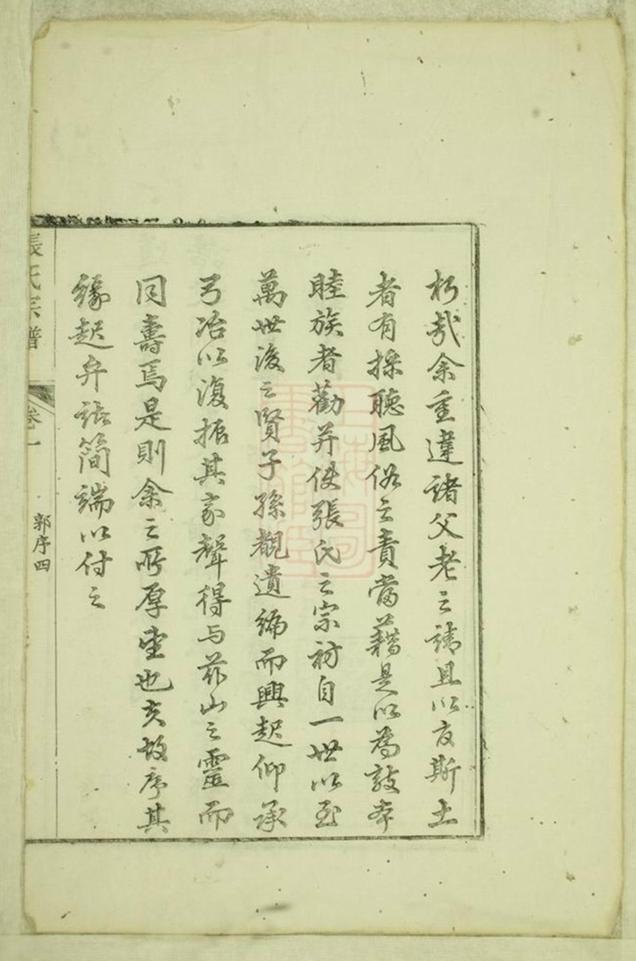 朽哉余重違諸父老之請且以友斯土
者有採聽風俗之責當藉是以為敦本
睦族者勸并使張氏之宗祊自一世以至
萬世後之賢子孫覩遺編而興起仰承
弓冶以復振其家聲得与茲山之靈而
同壽焉是則余之所厚望也夫故序其
緣起弁諸簡端以付之
張氏宗譜
卷一
郭序四